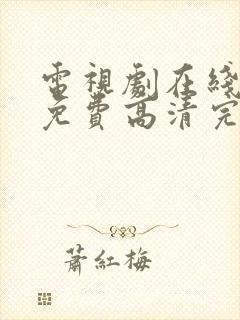 電視劇在綫
免費高清完
蕭紅梅